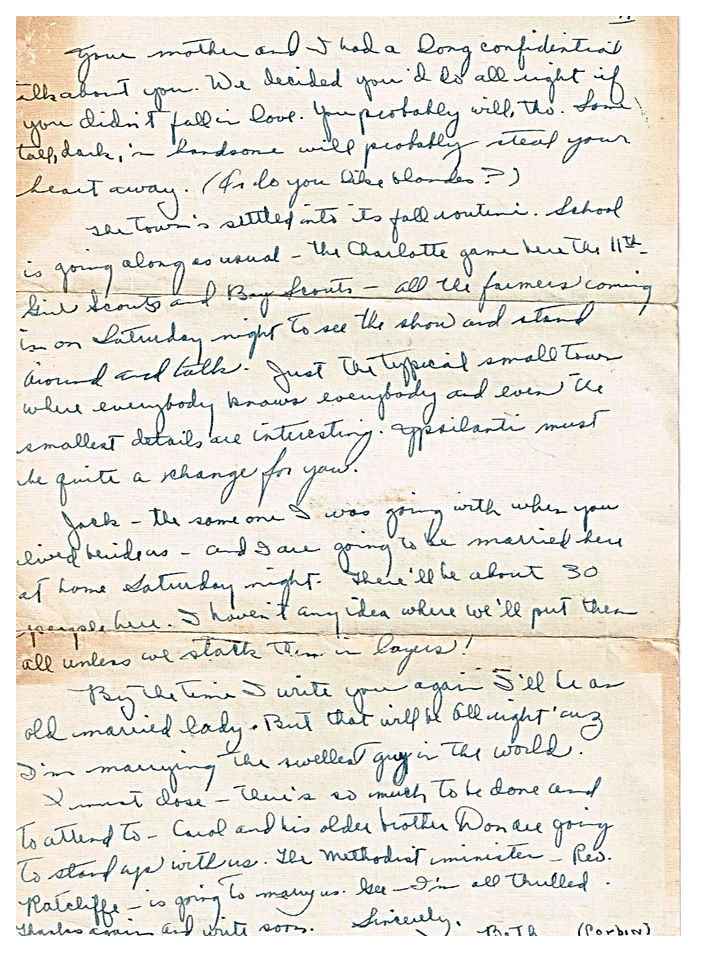 Your mother and I had a long confidential
talk about you. We decided you'd do all right if
you didn't fall in love. You probably will, tho. Some
tall, dark, 'n handsome will probably steal your
heart away. (Or do you like blondes?)
The town's settled into its fall routine. School
is going along as usual – the Charlotte game here the 11th –
Girl Scouts and Boy Scouts – all the farmers coming
in on Saturday night to see the show and stand
around and talk. Just the typical small town
where everybody knows everybody and even the
smallest details are interesting. Ypsilanti must
be quite a change for you.
Jack – the same one I was going with when you
lived beside us – and I are going to be married here
at home Saturday night. There'll be about 30
people here. I haven't any idea where we'll put them
all unless we stack them in layers!
By the time I write you again I'll be an
old married lady. But that will be all right 'cuz
I'm marrying the swellest guy in the world.
I must close – there's so much to be done and
to attend to – Carol and his older brother Don are going
to stand up with us. The Methodist minister – Rev.
Ratcliffe – is going to marry us. Gee – I'm all thrilled.
Thanks again and write soon. Sincerely,
Beth (Corbin)